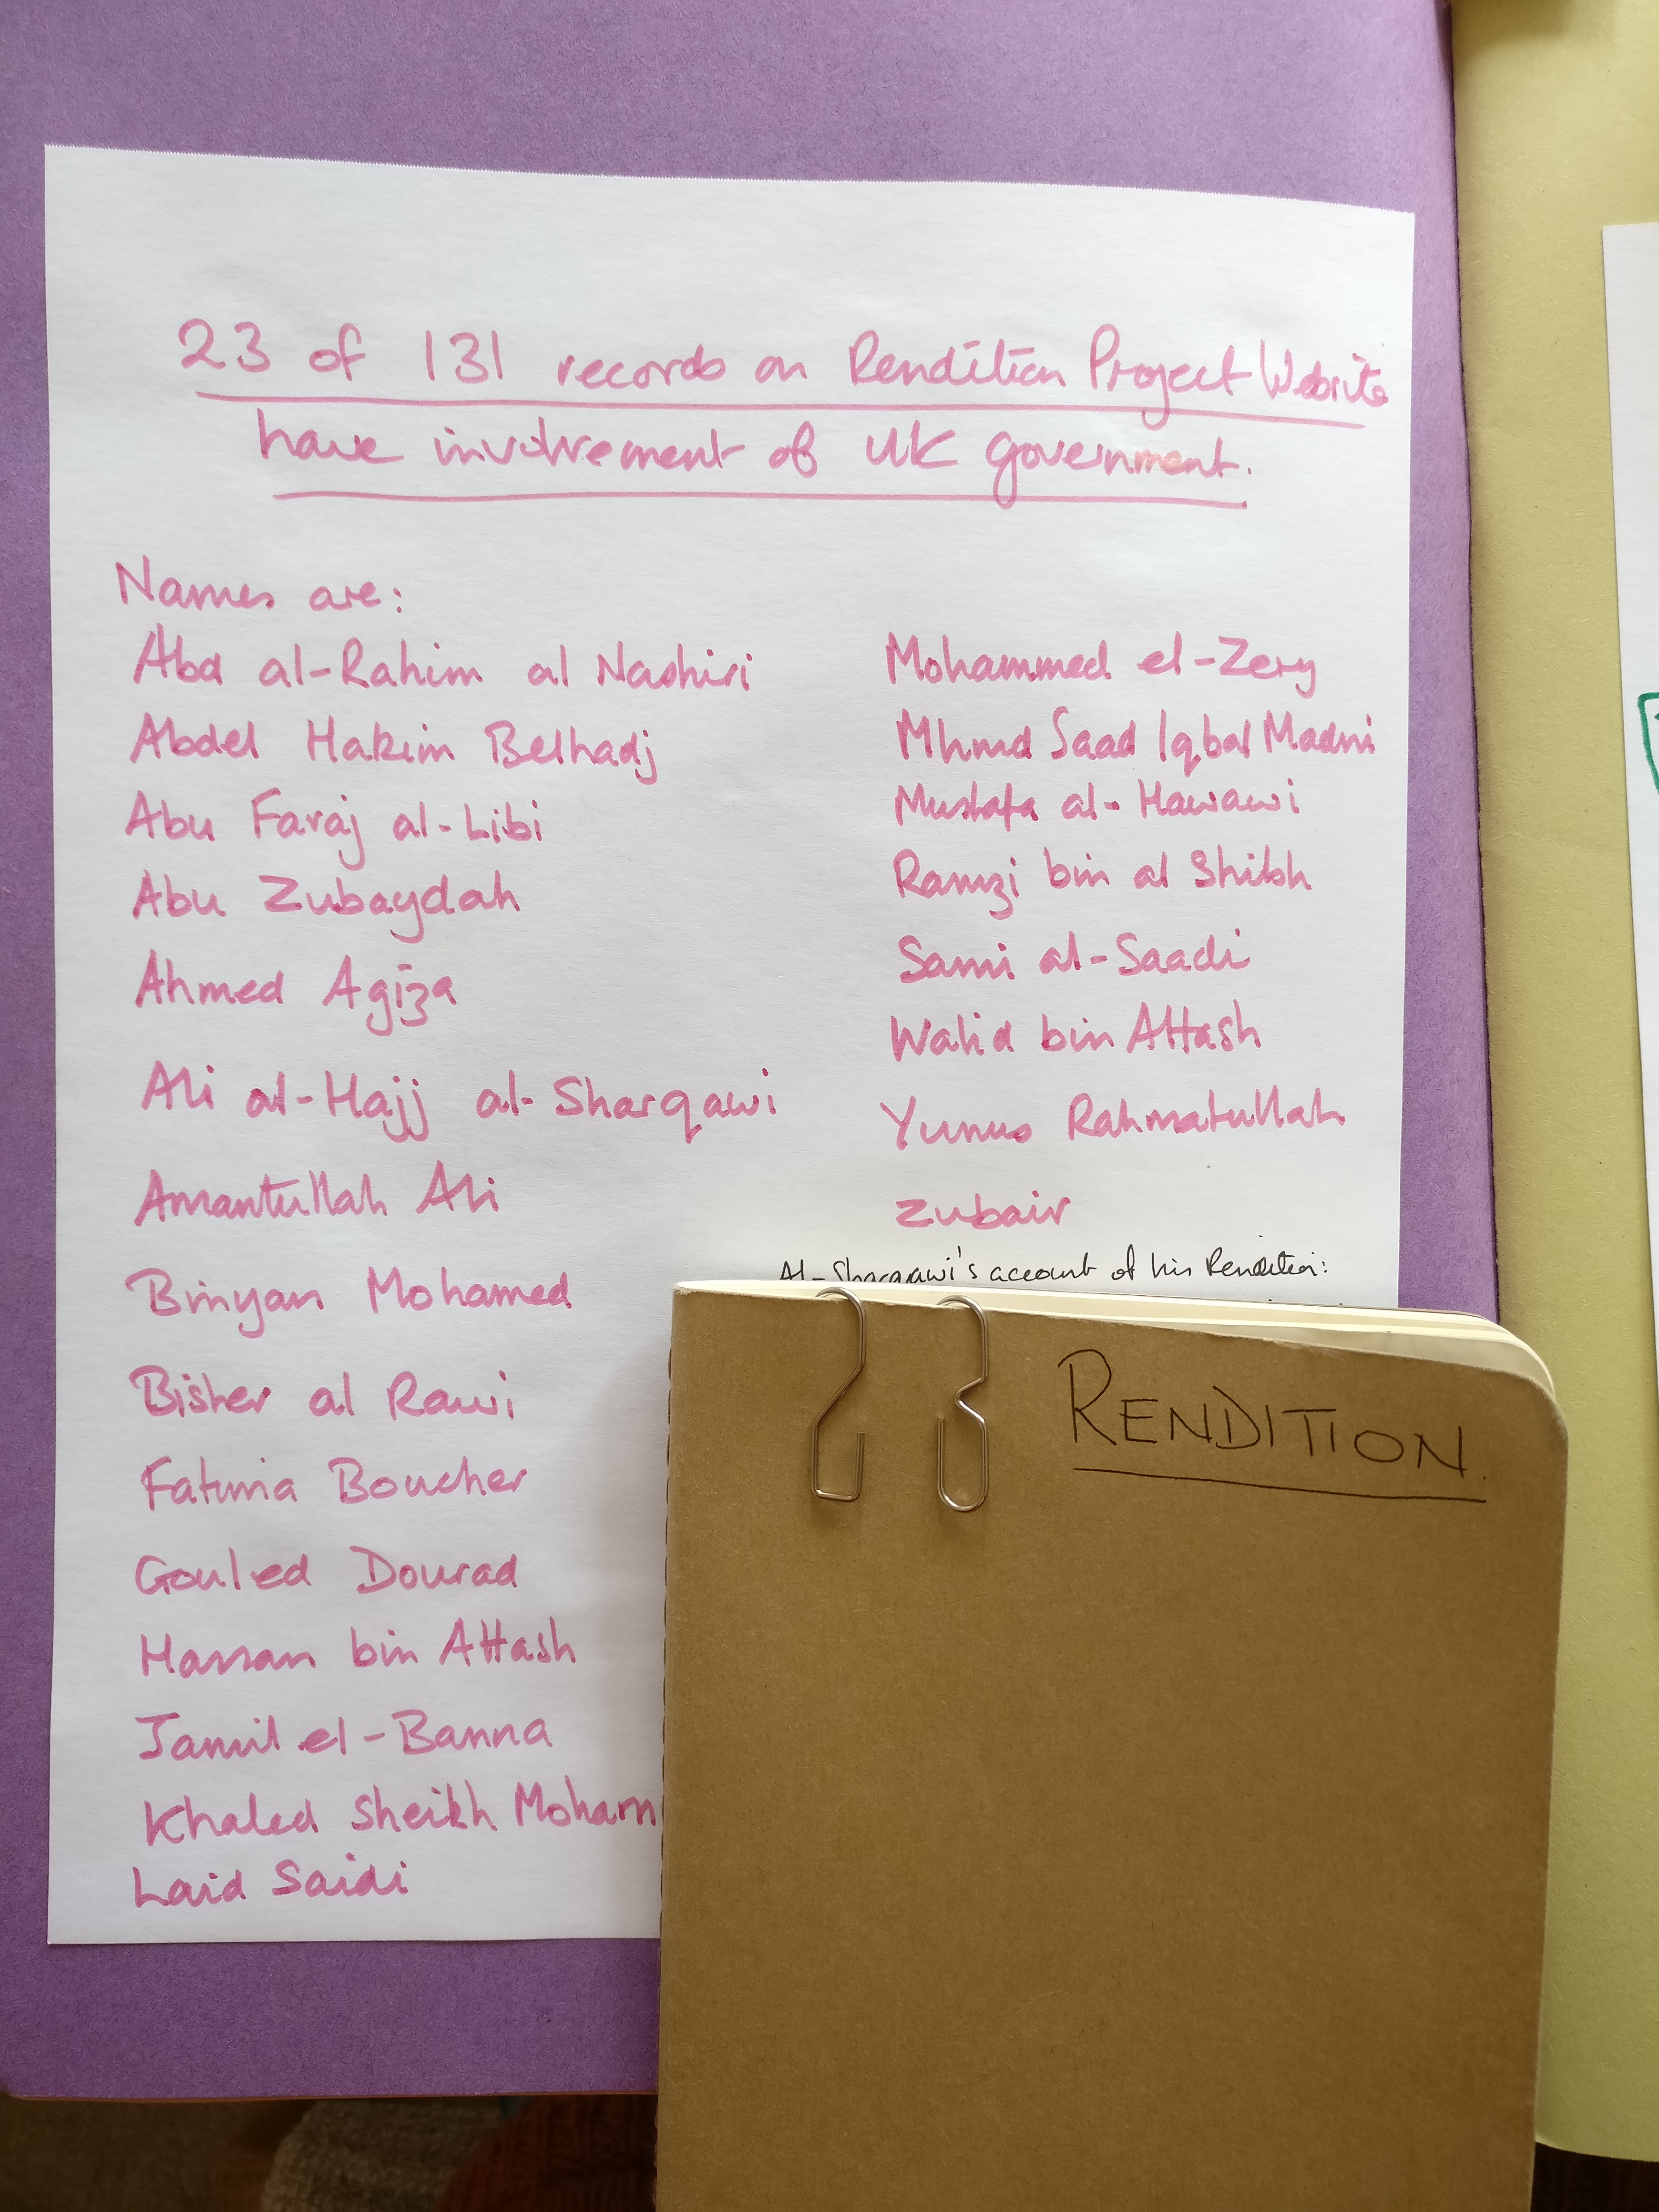 23 of 131 records on Rendition Project Website
have involvement of UK government.
Names are:
Abd al-Rahim al Nashiri
Abdel Hakim Belhadj
Abu Faraj al-Libi
Abu Zubaydah
Ahmed Agiza
Ali al-Hajj al-Sharqawi
Amantullah Ali
Binyan Mohamed
Bisher al Rawi
Fatima Boucher
Gouled Dourad
Hassan bin Attash
Jamil el-Banna
Khaled Sheikh Moham
Laid Saidi
Mohammed el-Zery
Mhmd Saad Iqbal Madni
Mustafa al-Hawawi
Ramzi bin al Shibh
Sami al-Saadi
Walid bin Attash
Yunus Rahmatullah
Zubair
Al-Sharqawi's account of his Rendition:
RENDITION.